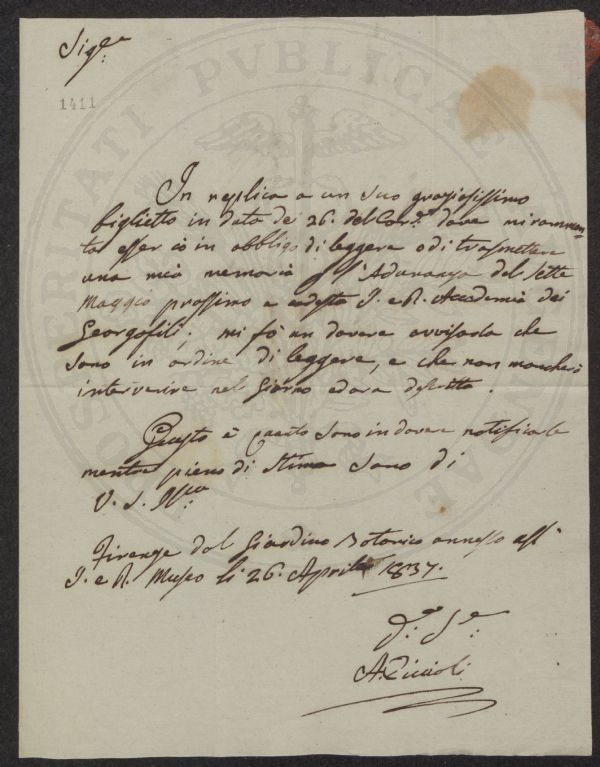 Sig.re
1411
In replica a un suo graziosissimo
biglietto in data dei 26. del Cor.te dove mi rammen-
ta esser io in obbligo di leggere o di trasmettere
una mia memoria p l'Adunanza del sette
Maggio prossimo a codesta I. e R. Accademia dei
Georgofili; mi fò un dovere avvisarla che
sono in ordine di leggere, e che non mancherò
intervenire nel Giorno ed ora
Questo è quanto sono in dovere notificarle
mentre pieno di stima sono di
V. S. Ill.ma
Firenze dal Giardino Botanico annesso all'
I. e R. Museo li 26. Aprile 1837.
D.mo S.re
A. Piccioli
PROSPERITATI PUBLICAE AUGENDAE